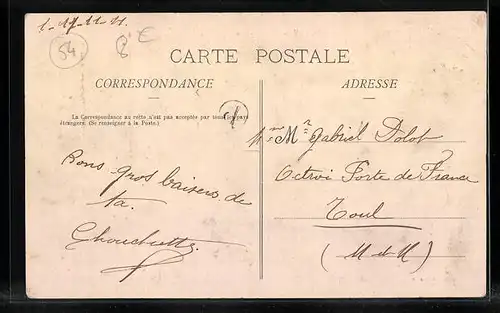 1-11-11-11
54
8 €
CARTE POSTALE
CORRESPONDANCE
ADRESSE
La Correspondance au recto n'est pas acceptée par tous les pays
étrangers. (Se renseigner à la Poste.)
Mr Gabriel Dolot
Octroi Porte de France
Toul
(M et M)
Bons gros baisers de
ta
Chouchette